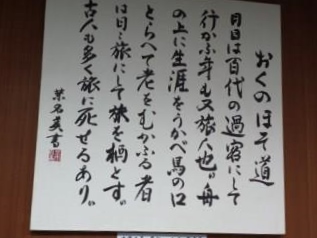 おくのほそ道
月日は百代の過客にして
行かふ年も又旅人也。舟
の上に生涯をうかべ馬の口
とらへて老をむかふる者
は日々旅にして旅を栖とす。
古人も多く旅に死せるあり。